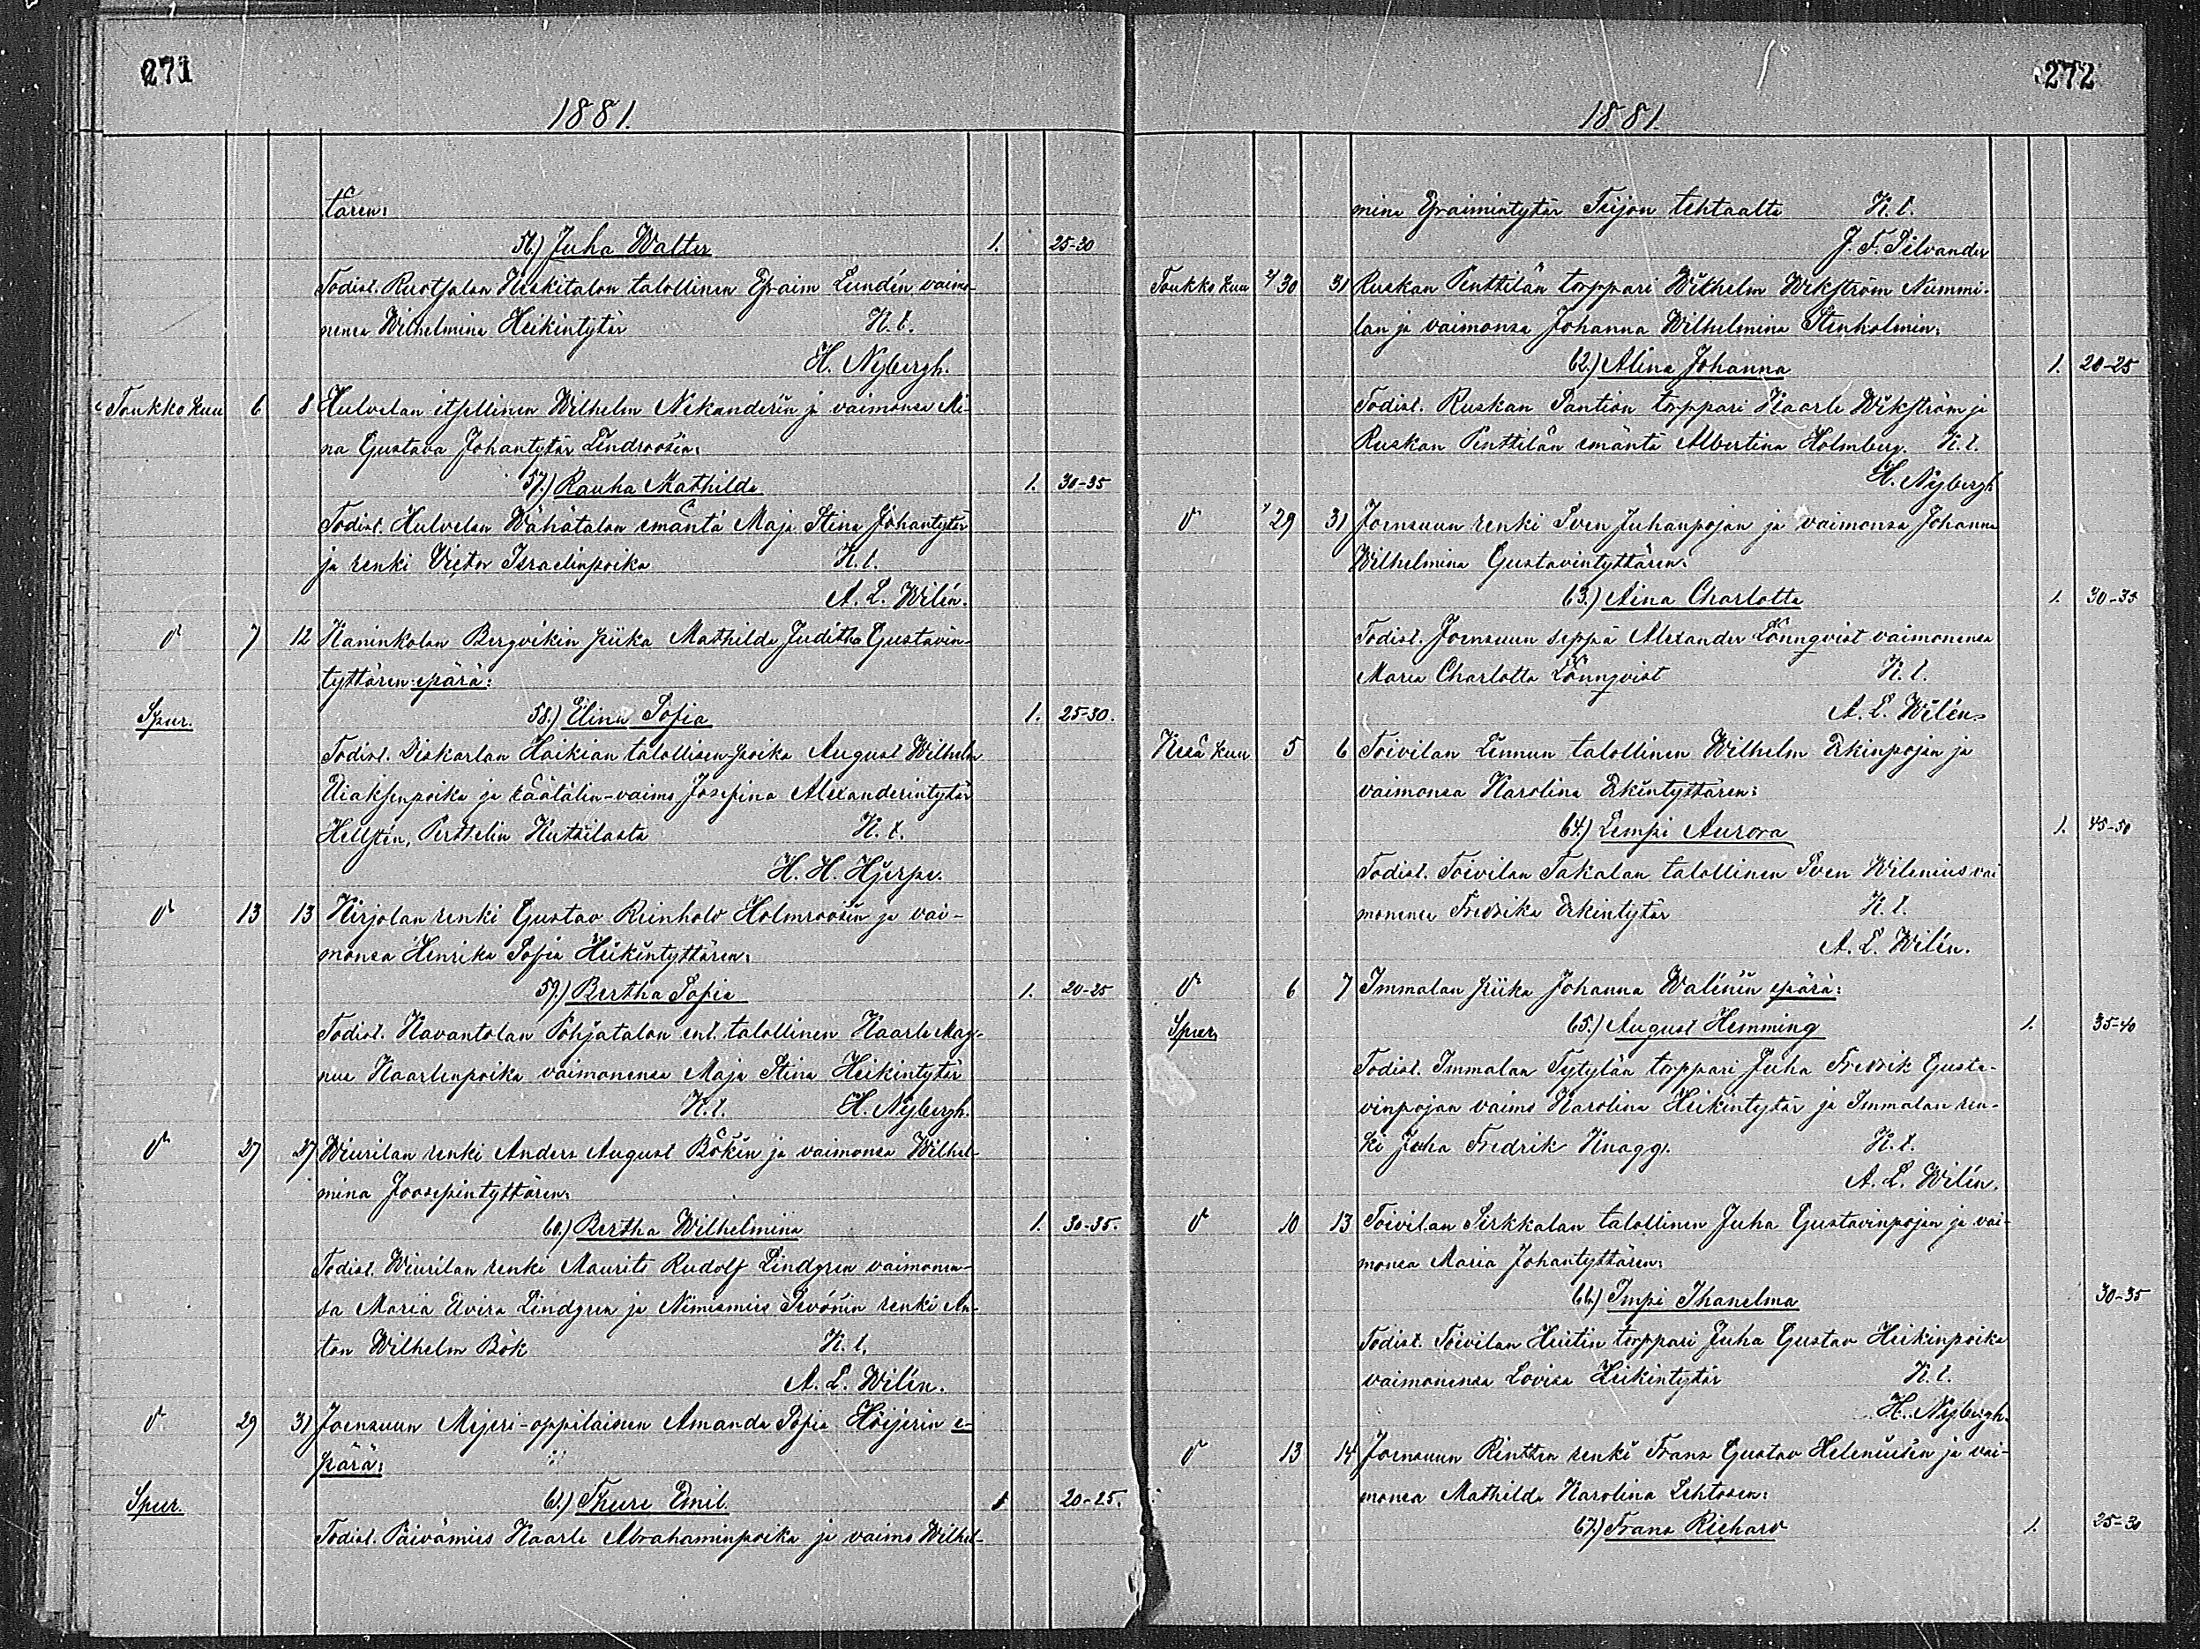 271
1881.
tären:
56.) Juha Walter 1. 25-30
Todist. Ruotsalan Heikitalon talollinen Efraim Lundén, vaimo-
nensa Wilhelmina Heikintytär K. t.
H. Nybergh.
Toukko kuu 6 8 Hulvelan itsellinen Wilhelm Nekanderin ja vaimonsa Mi-
na Gustava Johantytär Lindroosin:
57.) Rauha Mathilda 1. 30-35
Todist. Hulvelan Wähätalon emäntä Maja Stina Johantytär
ja renki Victor Israelinpoika K. t.
A. L. Wilén.
" 7 12 Kaninkolan Bergvikin piika Mathilda Juditha Gustavin-
tyttären epärä:
Spur. 58.) Elina Sofia 1. 25-30.
Todist. Diskarlan Haikian talollisen-poika August Wilhelm
Eliaksenpoika ja räätälin-vaimo Josefina Alexanderintytär
Hellstén, Perttelin Kuttilasta K. t.
H. H. Hjerpe.
" 13 13 Kirjolan renki Gustav Reinhold Holmroosin ja vai-
monsa Henrika Sofia Heikintyttären:
59.) Bertha Sofia 1. 20-25
Todist. Kavantolan Pohjatalon ent. talollinen Kaarle Mag-
nus Kaarlenpoika vaimonensa Maja Stina Heikintytär
K. t. H. Nybergh.
" 27 27 Wiurilan renki Anders August Bökin ja vaimonsa Wilhel-
mina Joosepintyttären:
60.) Bertha Wilhelmina 1. 30-35.
Todist. Wiurilan renki Maurits Rudolf Lindgren vaimonen-
sa Maria Elvira Lindgren ja Nimismies Sevónin renki An-
ton Wilhelm Bök K. t.
A. L. Wilén.
" 29 31 Joensuun Mejeri-oppilaisen Amanda Sofia Höijerin e-
pärä:
Spur. 61.) Thure Emil 1 20-25.
Todist. Päivämies Kaarle Abrahaminpoika ja vaimo Wilhel-
272
1881.
mina Efraimintytär Teijon tehtaalta K. t.
J. F. Silvander
Toukko kuu 30 31 Ruskan Penttilän torppari Wilhelm Wikström Nummi-
lan ja vaimonsa Johanna Wilhelmina Stenholmin:
62.) Alina Johanna 1. 20-25
Todist. Ruskan Pantion torppari Kaarle Wikström ja
Ruskan Penttilän emäntä Albertina Holmberg. K. t.
H. Nybergh
" 29 31 Joensuun renki Sven Juhanpojan ja vaimonsa Johanna
Wilhelmina Gustavintyttären:
63.) Aina Charlotta 1. 30-35
Todist. Joensuun seppä Alexander Lönnqvist vaimonensa
Maria Charlotta Lönnqvist K. t.
A. L. Wilén.
Kesä kuu 5 6 Toivilan Lennun talollinen Wilhelm Erkinpojan ja
vaimonsa Karolina Erkintyttären:
64.) Lempi Aurora 1. 45-50
Todist. Toivilan Takalan talollinen Sven Wilenius vai
monensa Fredrika Erkintytär K. t.
A. L. Wilén.
" 6 7 Immalan piika Johanna Walinin epärä:
Spur. 65.) August Hemming 1. 35-40
Todist. Immalan Tytylän torppari Juha Fredrik Gusta-
vinpojan vaimo Karolina Heikintytär ja Immalan ren-
ki Juha Fredrik Knagg. K. t.
A. L. Wilén.
" 10 13 Toivilan Sirkkalan talollinen Juha Gustavinpojan ja vai-
monsa Maria Johantyttären:
66.) Impi Ihanelma 30-35
Todist. Toivilan Heitin torppari Juha Gustav Heikinpoika
vaimonensa Lovisa Heikintytär K. t.
H. Nybergh.
" 13 14 Joensuun Rinteen renki Frans Gustav Heleniusin ja vai-
monsa Mathilda Karolina Lehtosen:
67.) Frans Richard 1. 25-30